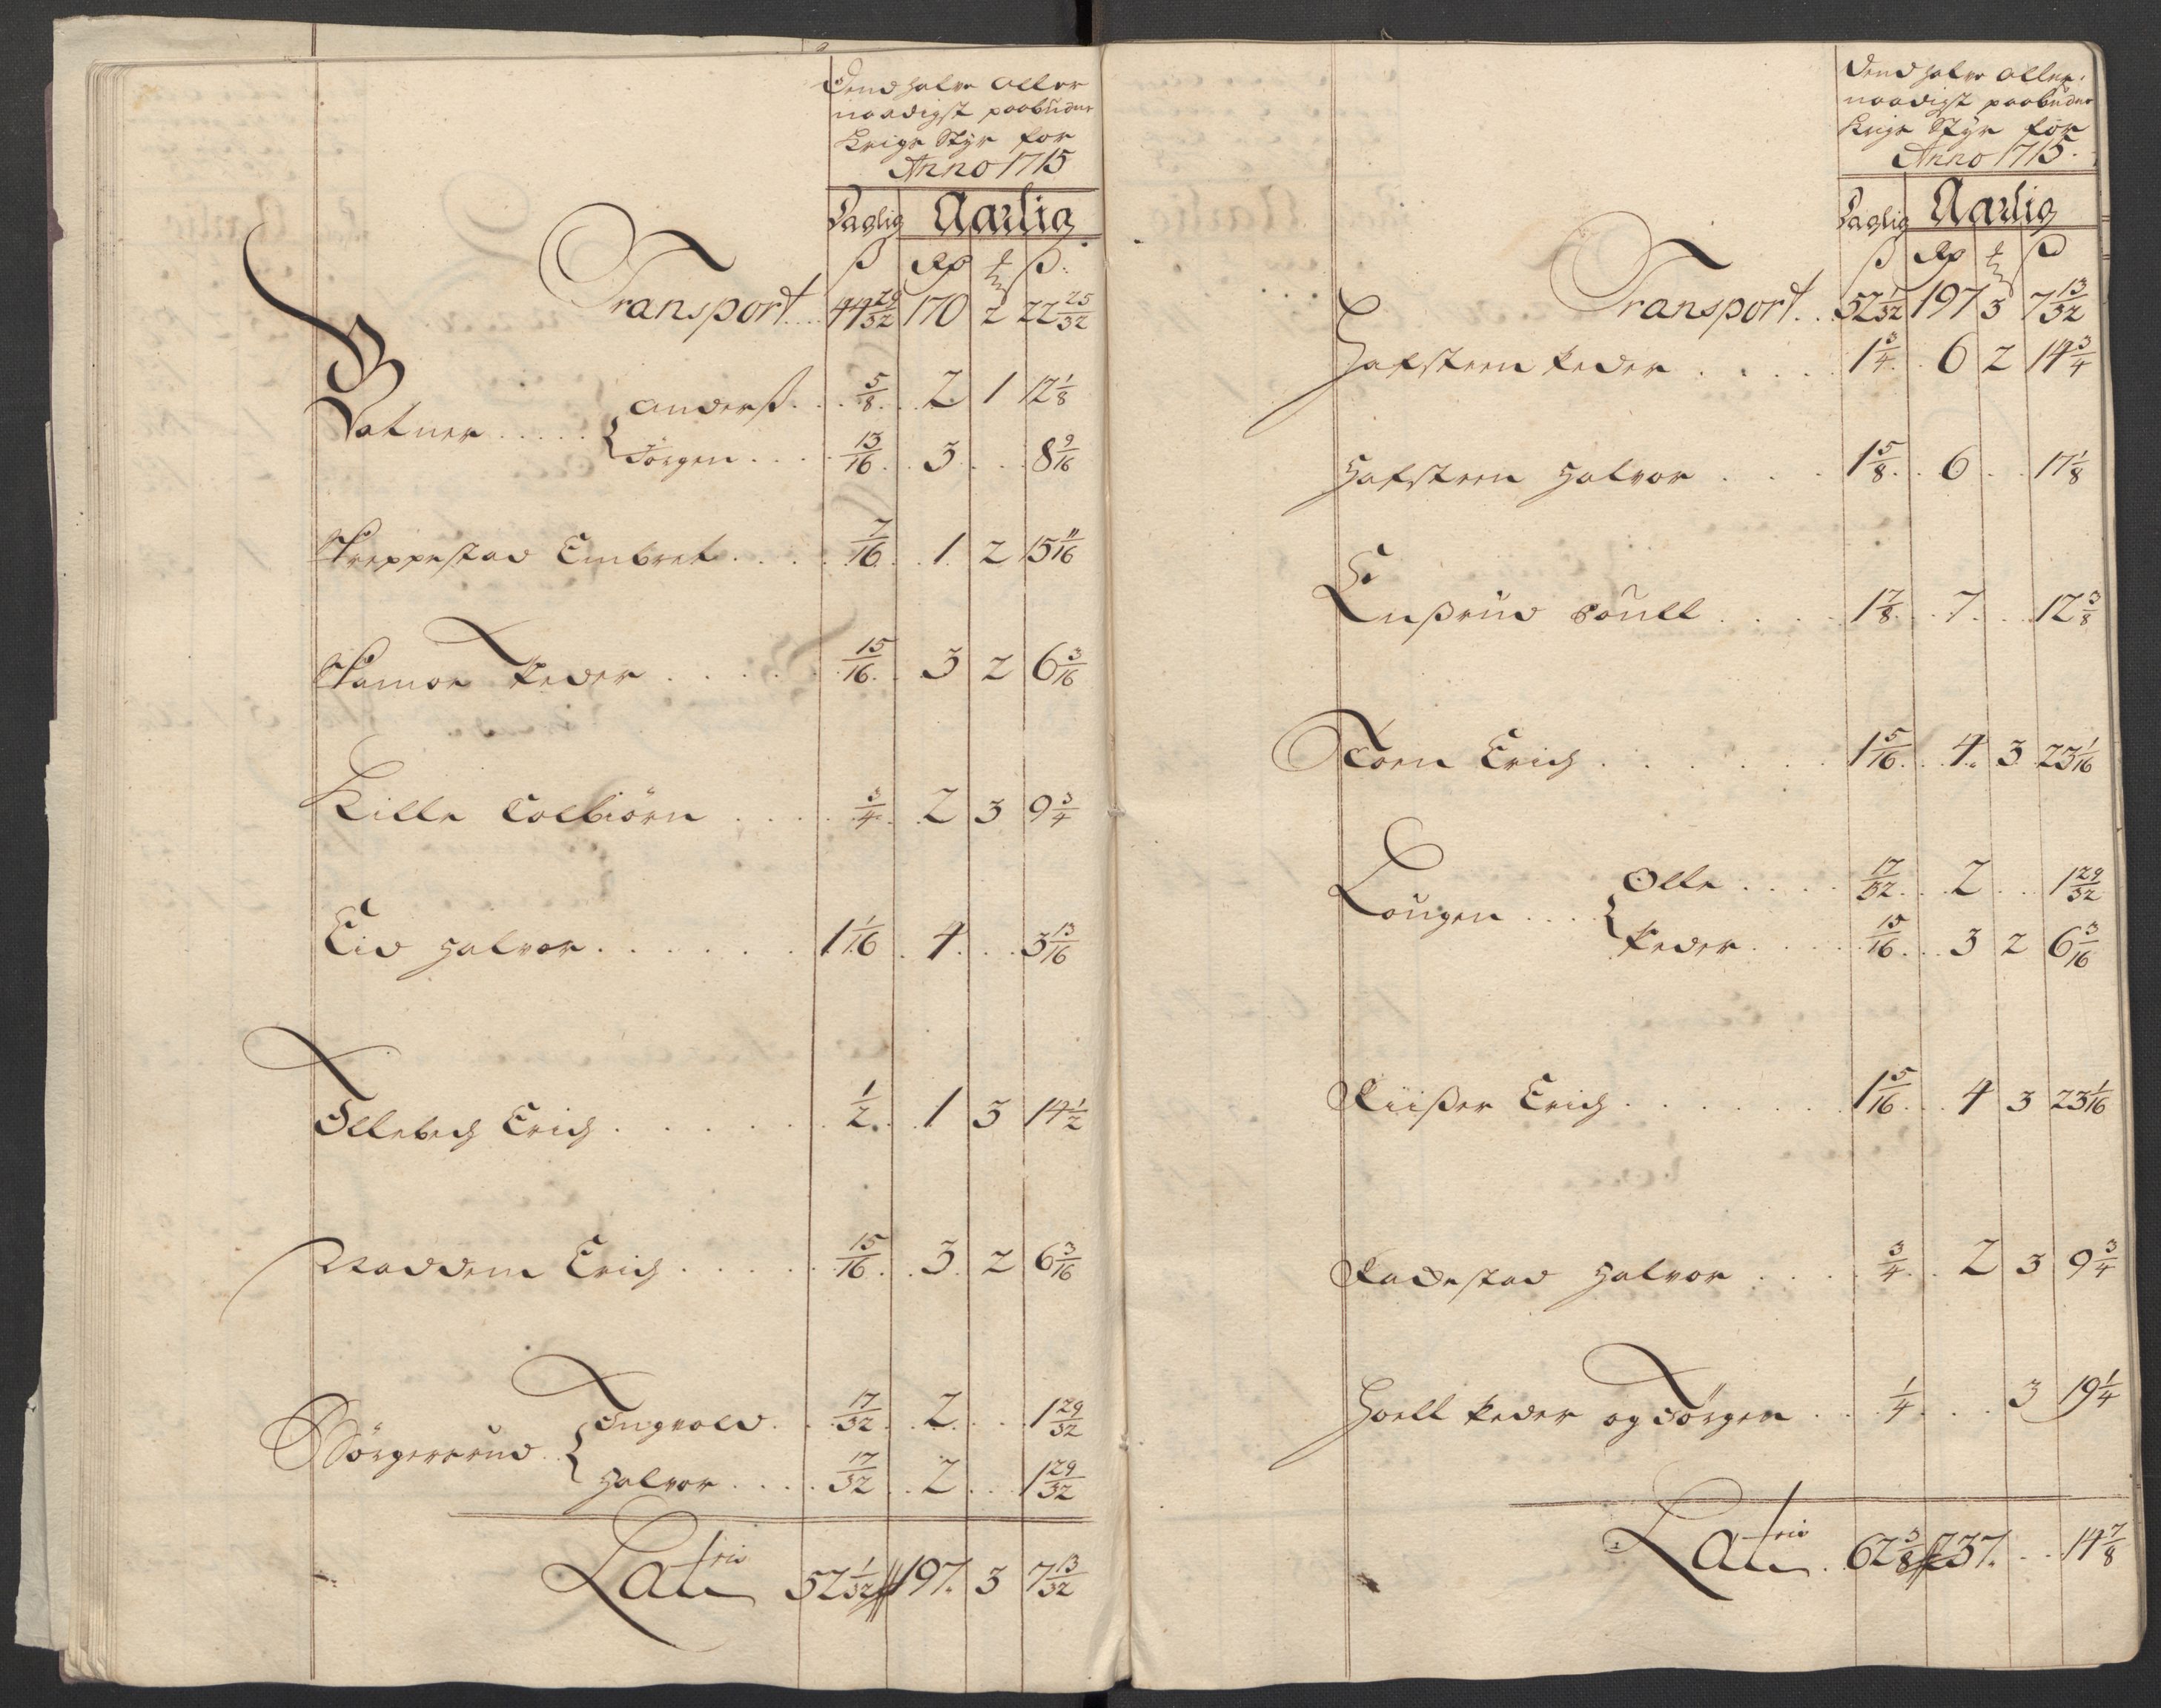 Dend halve aller
naadigst paabudne
Krigs Styr for
Anno 1715
Daglig Aarlig
ß Rdr ß
Transport... 44 29/32 170 2 22 25/32
Vatner..... Anderß... 5/8.. 2 1 12 1/8
Jörgen.... 13/16.. 3... 8 9/16
Treppestad Embret.... 7/16.. 1 2 15 11/16
Peder..... 15/16.. 3 2 6 3/16
Kille Colbiörn.... 3/4.. 2 3 9 3/4
Eid Halvor...... 1 1/16. 4... 3 13/16
Ollebech Erich...... 1/2.. 1 3 14 1/2
Naddem Erich..... 15/16.. 3. 2 6 3/16
Börgersrud.. Ingvold.. 17/32.. 2... 1 29/32
Halvor.... 17/32.. 2... 1 29/32
Lateris 52 1/32 197. 3 7 13/32
Dend halve aller
naadigst paabudne
Krigs Styr for
Anno 1715.
Daglig Aarlig
ß Rdr ß
Transport.. 52 1/32 197 3 7 13/32
Hafsteen Peder..... 1 3/4.. 6 2 14 3/4
Hafsteen Halvor... 1 5/8.. 6... 17 1/8
Poull.... 1 7/8.. 7... 12 3/8
Torn Erich...... 1 5/16.. 4. 3 23 1/16
Lougen.... Olle.... 17/32.. 2... 1 29/32
Peder.... 15/16.. 3 2 6 3/16
Riißer Erich....... 1 5/16.. 4 3 23 1/16
Rakkestad Halvor.... 3/4.. 2 3 9 3/4
Hoell Peder og Jörgen... 1/4.... 3 19 1/4
Lateris. 62 3/8 237... 14 7/8